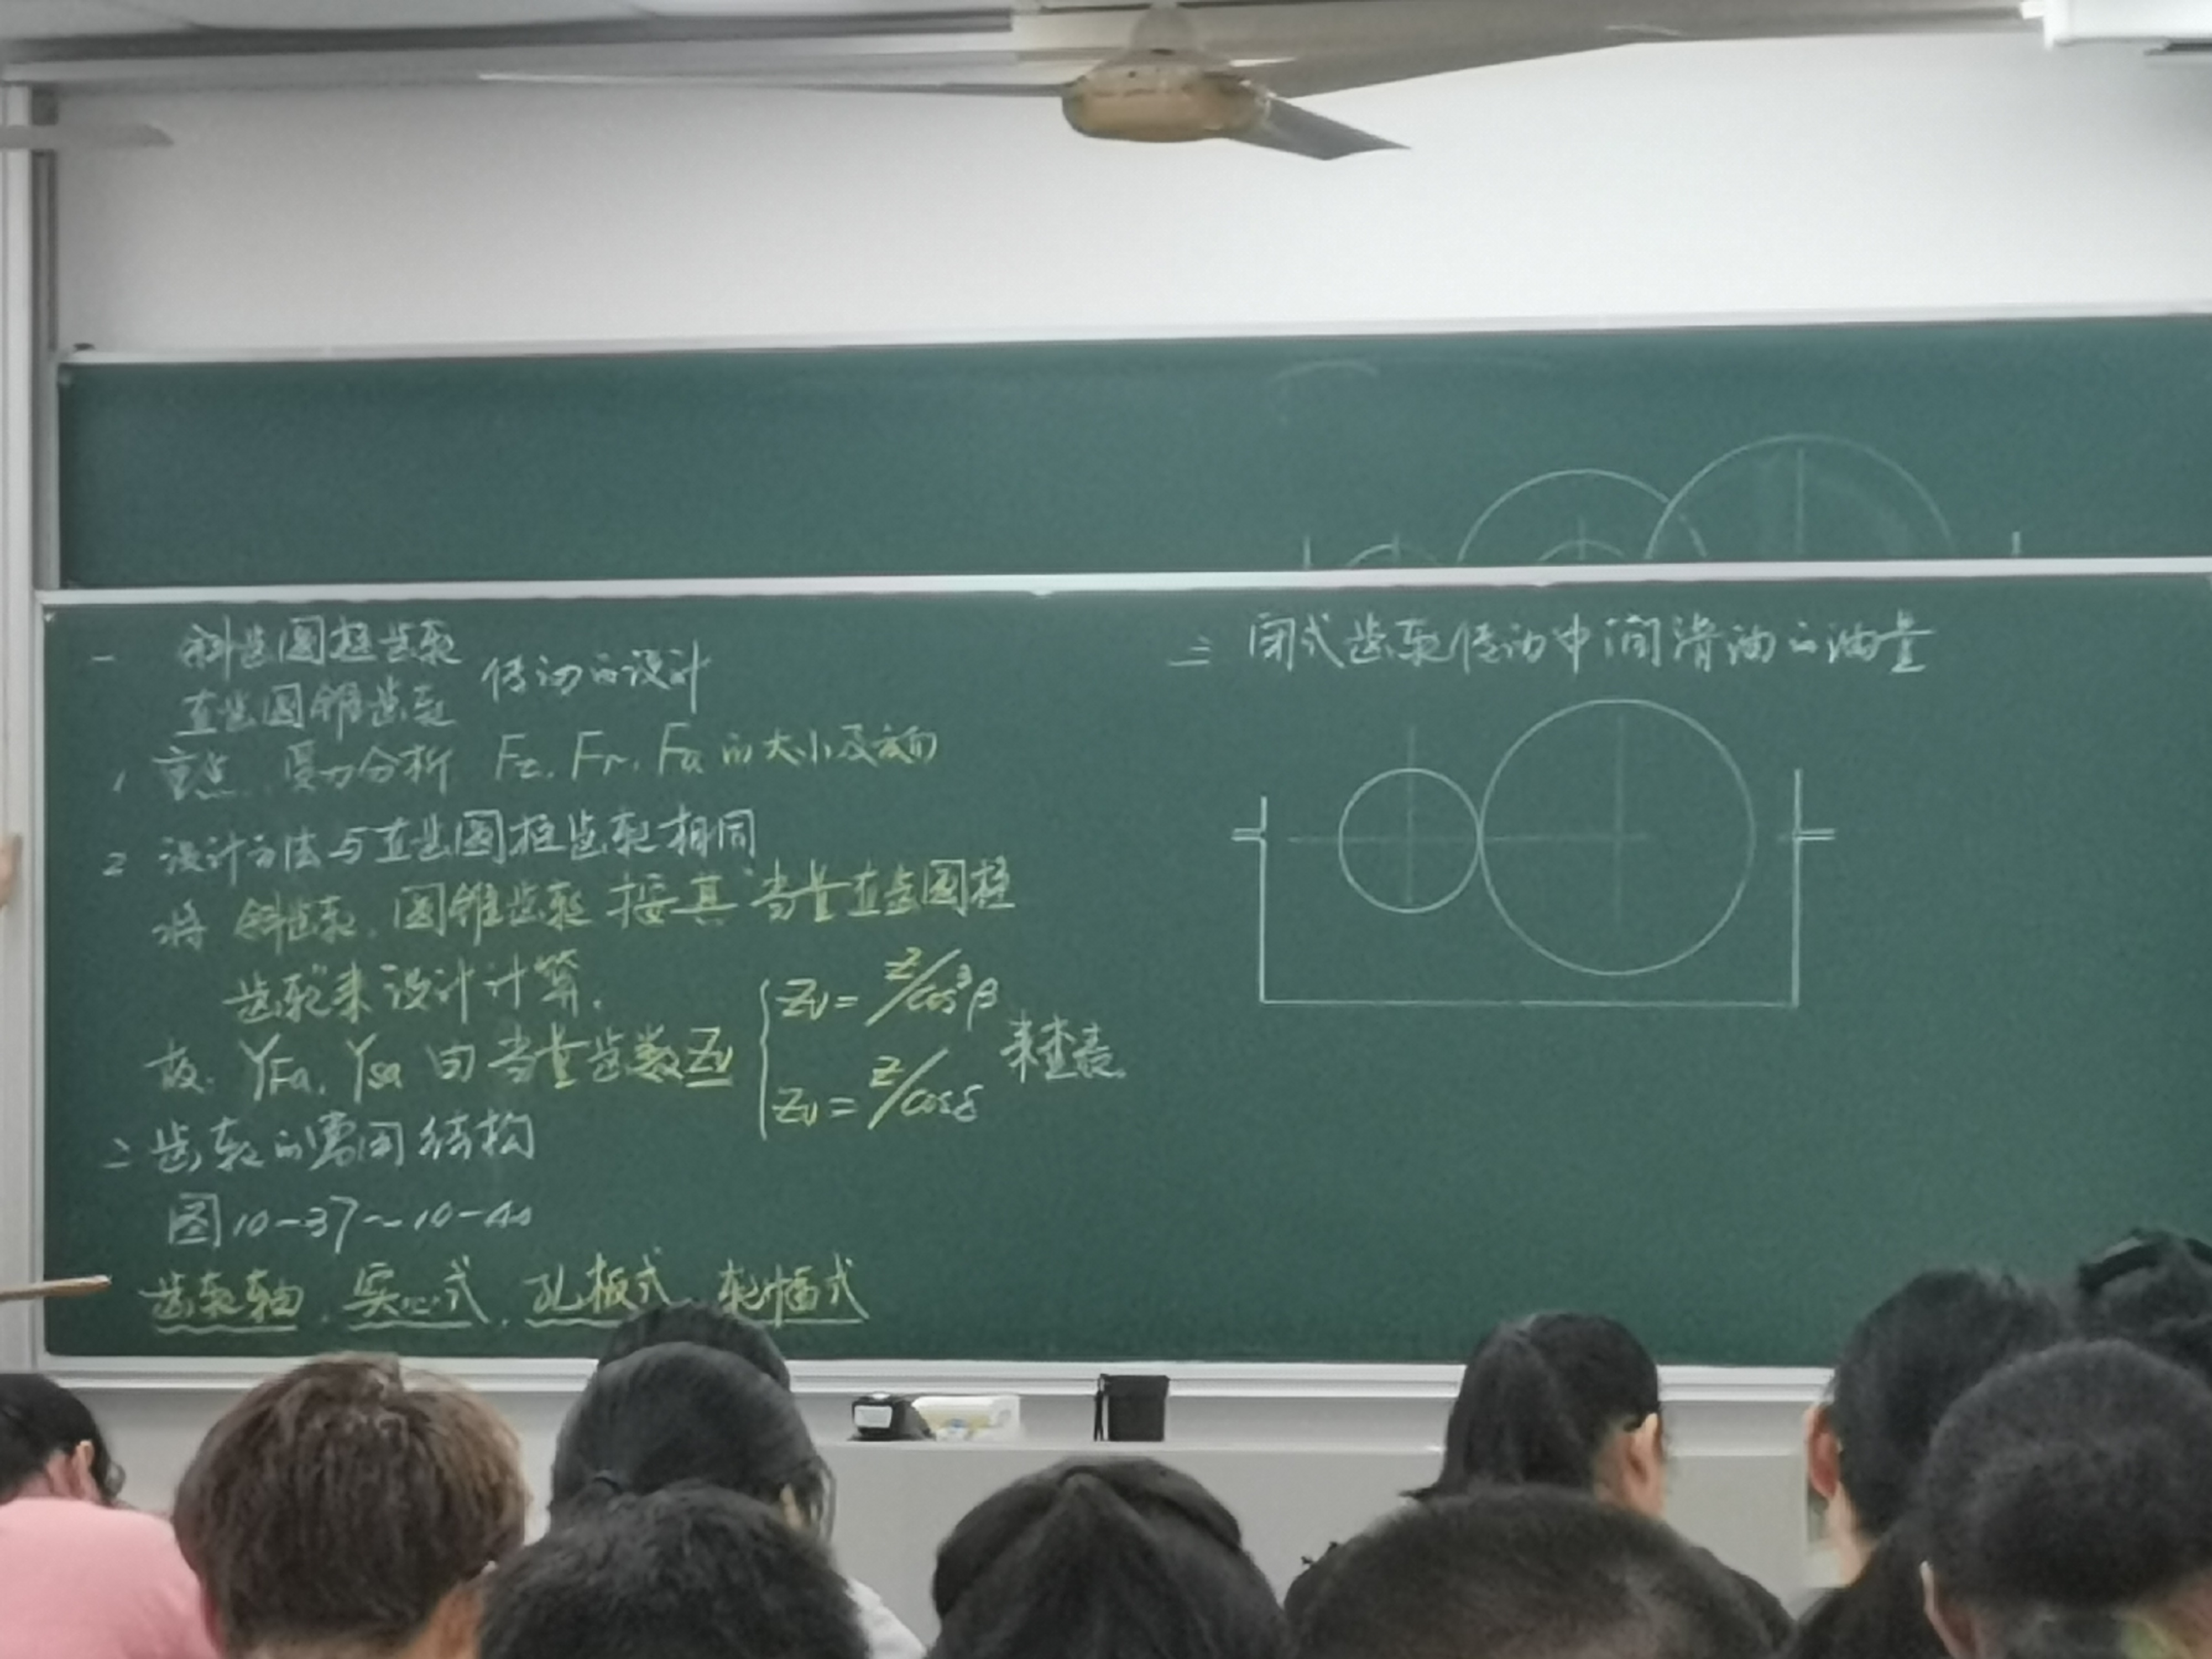 一 斜齿圆柱齿轮
直齿圆锥齿轮 传动的设计
1 重点. 受力分析 Ft, Fr, Fa 的大小及方向
2 设计方法与直齿圆柱齿轮相同
将 斜齿轮. 圆锥齿轮 按其"当量直齿圆柱
齿轮"来设计计算.
故. YFa, Ysa 由当量齿数Zv { Zv = Z/cos³β
Zv = Z/cosδ 来查表.
二 齿轮的常用结构
图10-37~10-40
齿轮轴. 实心式. 孔板式 轮幅式
三 闭式齿轮传动中润滑油的油量